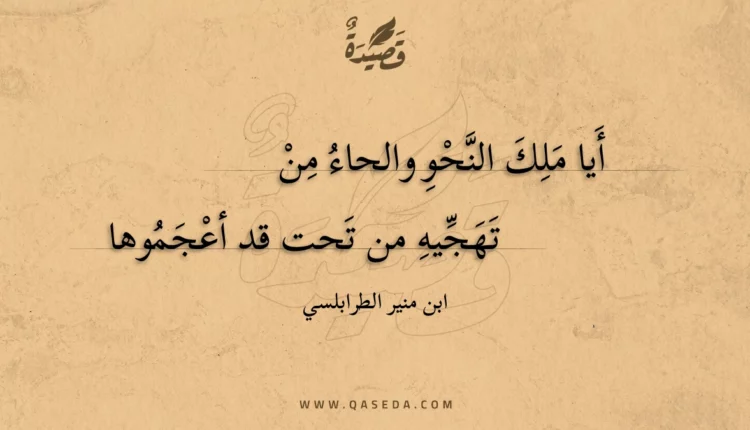 قَصِيْدَةٌ
أَيا مَلِكَ النَّحْوِ والحاءُ مِنْ
تَهَجِّيهِ من تَحت قد أعْجَمُوها
ابن منير الطرابلسي
WWW.QASEDA.COM